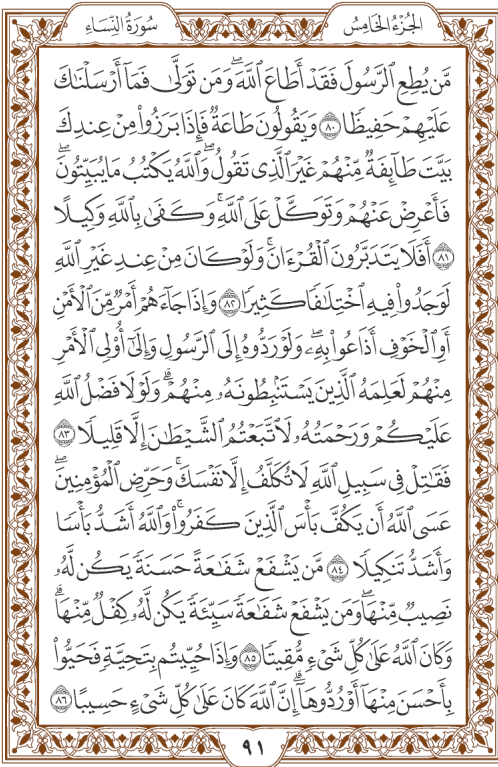 الجُزْءُ الخَامِسُ سُورَةُ النِّسَاءِ
مَّن يُطِعِ ٱلرَّسُولَ فَقَدْ أَطَاعَ ٱللَّهَۖ وَمَن تَوَلَّىٰ فَمَآ أَرْسَلْنَٰكَ
عَلَيْهِمْ حَفِيظًا ٨٠ وَيَقُولُونَ طَاعَةٌ فَإِذَا بَرَزُوا۟ مِنْ عِندِكَ
بَيَّتَ طَآئِفَةٌ مِّنْهُمْ غَيْرَ ٱلَّذِى تَقُولُۖ وَٱللَّهُ يَكْتُبُ مَا يُبَيِّتُونَۖ
فَأَعْرِضْ عَنْهُمْ وَتَوَكَّلْ عَلَى ٱللَّهِۚ وَكَفَىٰ بِٱللَّهِ وَكِيلًا
٨١ أَفَلَا يَتَدَبَّرُونَ ٱلْقُرْءَانَۚ وَلَوْ كَانَ مِنْ عِندِ غَيْرِ ٱللَّهِ
لَوَجَدُوا۟ فِيهِ ٱخْتِلَٰفًا كَثِيرًا ٨٢ وَإِذَا جَآءَهُمْ أَمْرٌ مِّنَ ٱلْأَمْنِ
أَوِ ٱلْخَوْفِ أَذَاعُوا۟ بِهِۦۖ وَلَوْ رَدُّوهُ إِلَى ٱلرَّسُولِ وَإِلَىٰٓ أُو۟لِى ٱلْأَمْرِ
مِنْهُمْ لَعَلِمَهُ ٱلَّذِينَ يَسْتَنۢبِطُونَهُۥ مِنْهُمْۗ وَلَوْلَا فَضْلُ ٱللَّهِ
عَلَيْكُمْ وَرَحْمَتُهُۥ لَٱتَّبَعْتُمُ ٱلشَّيْطَٰنَ إِلَّا قَلِيلًا ٨٣
فَقَٰتِلْ فِى سَبِيلِ ٱللَّهِ لَا تُكَلَّفُ إِلَّا نَفْسَكَۚ وَحَرِّضِ ٱلْمُؤْمِنِينَۖ
عَسَى ٱللَّهُ أَن يَكُفَّ بَأْسَ ٱلَّذِينَ كَفَرُوا۟ۚ وَٱللَّهُ أَشَدُّ بَأْسًا
وَأَشَدُّ تَنكِيلًا ٨٤ مَّن يَشْفَعْ شَفَٰعَةً حَسَنَةً يَكُن لَّهُۥ
نَصِيبٌ مِّنْهَاۖ وَمَن يَشْفَعْ شَفَٰعَةً سَيِّئَةً يَكُن لَّهُۥ كِفْلٌ مِّنْهَاۗ
وَكَانَ ٱللَّهُ عَلَىٰ كُلِّ شَىْءٍ مُّقِيتًا ٨٥ وَإِذَا حُيِّيتُم بِتَحِيَّةٍ فَحَيُّوا۟
بِأَحْسَنَ مِنْهَآ أَوْ رُدُّوهَآۗ إِنَّ ٱللَّهَ كَانَ عَلَىٰ كُلِّ شَىْءٍ حَسِيبًا ٨٦
٩١